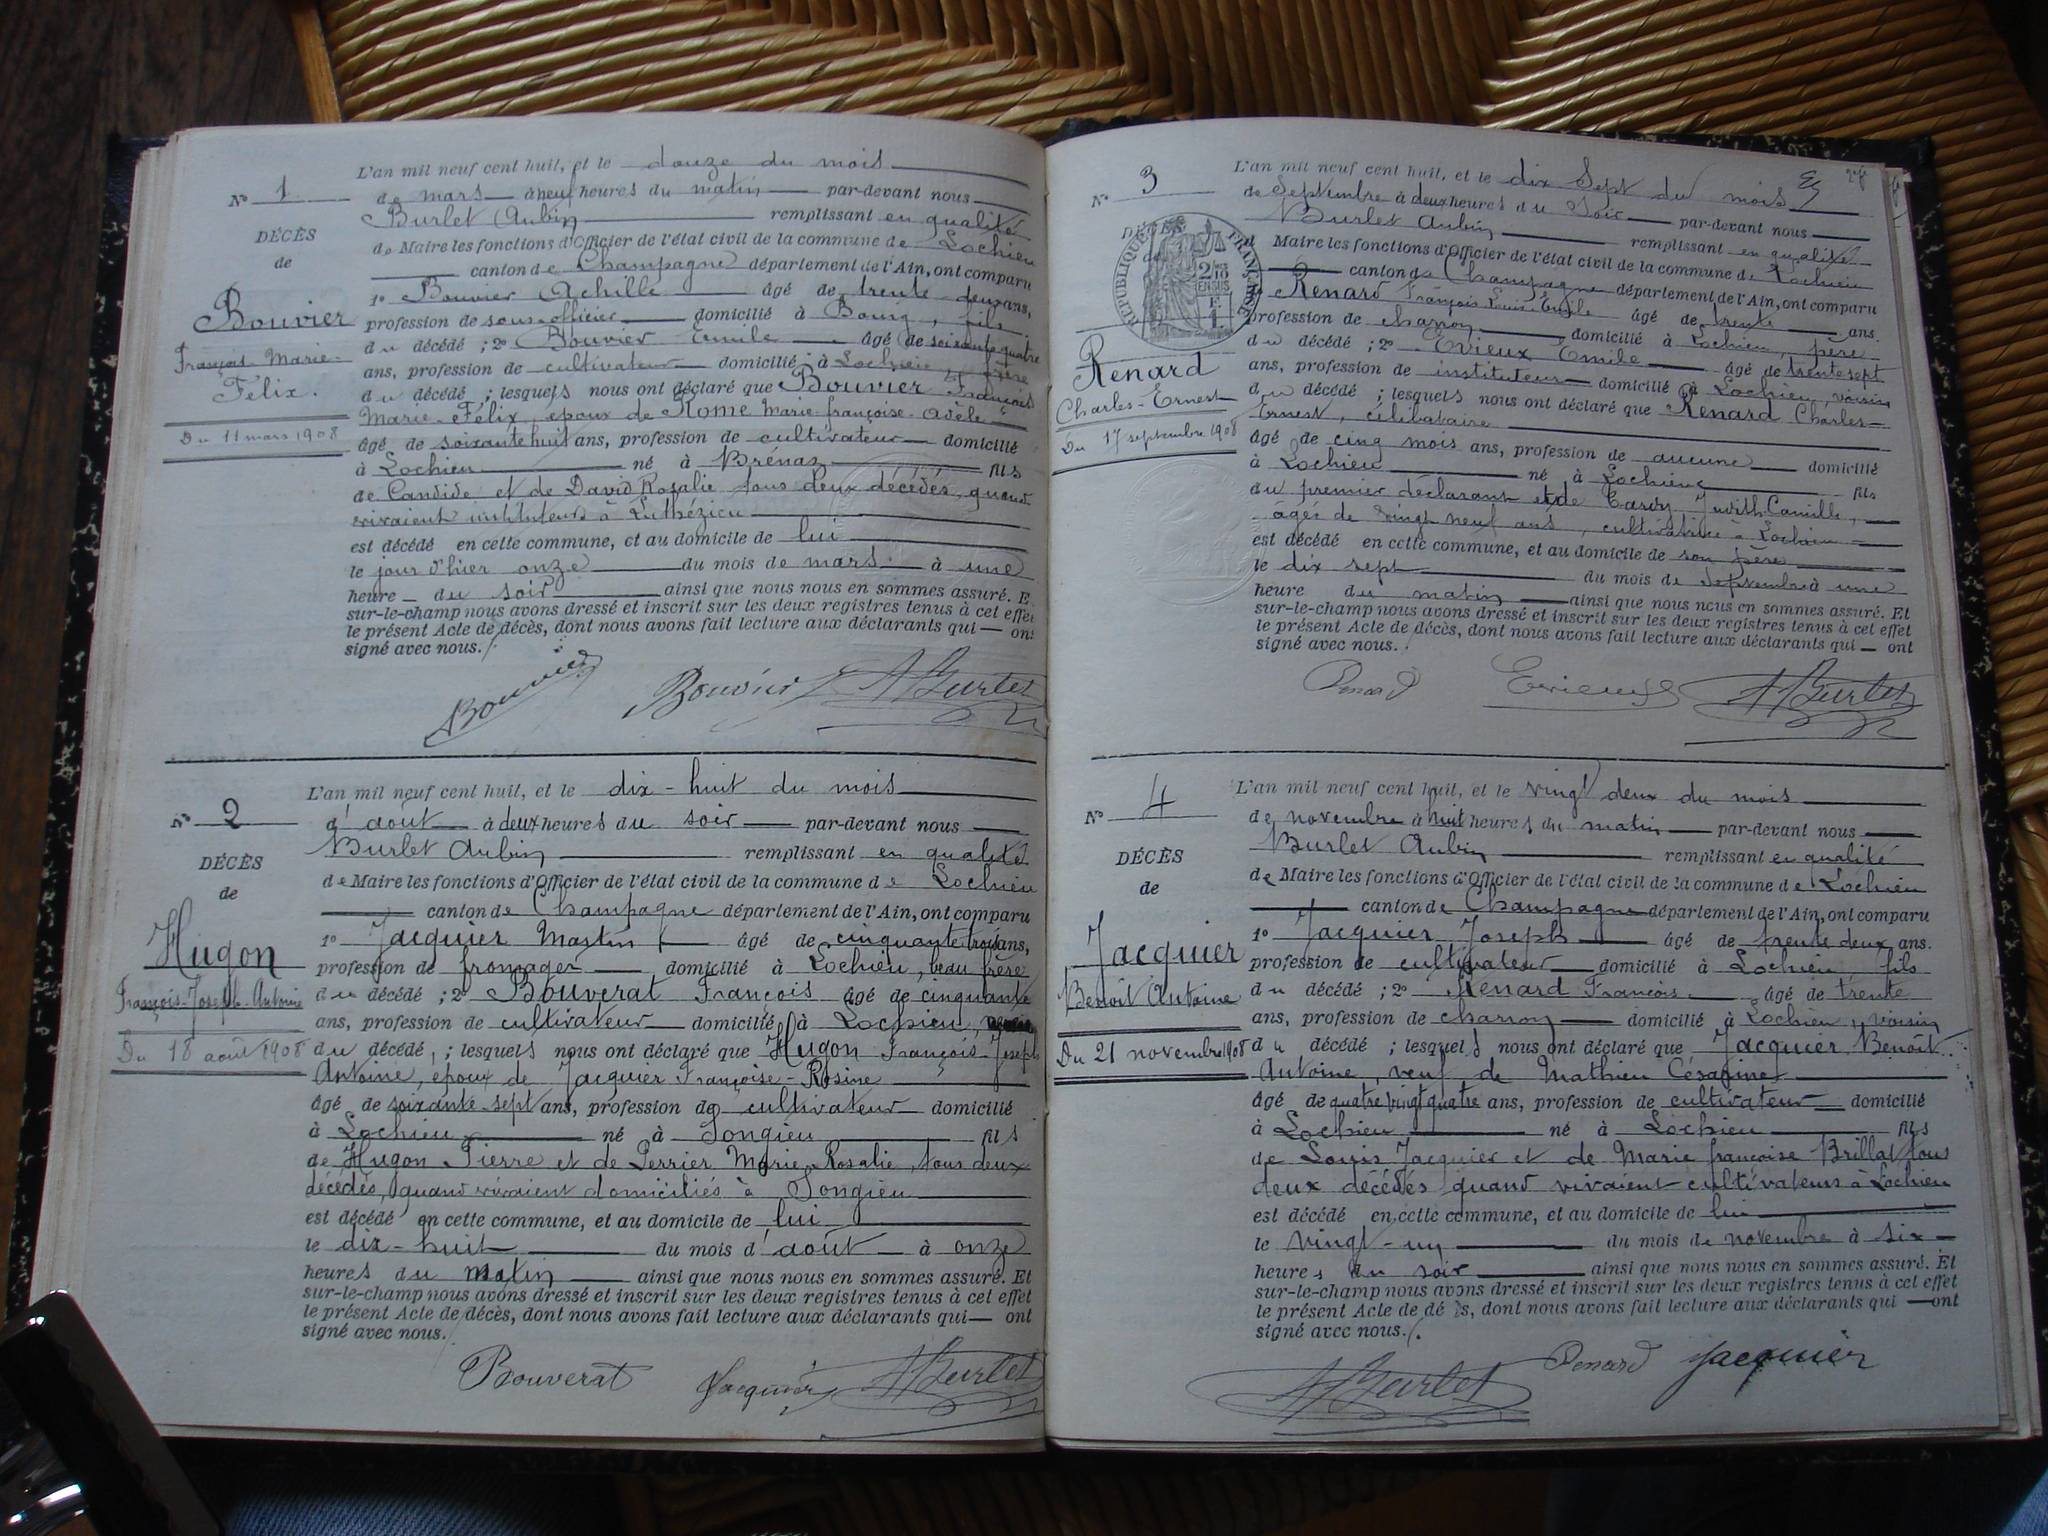 L'an mil neuf cent huit, et le douze du mois
N° 1
de mars à neuf heures du matin par-devant nous
Burlet Aubin remplissant en qualité
DÉCÈS
de Maire les fonctions d'Officier de l'état civil de la commune de Lochieu
de
canton de Champagne département de l'Ain, ont comparu
1° Bouvier Achille âgé de trente-deux ans,
Bouvier
profession de sous-officier domicilié à Bourg, fils
du décédé ; 2° Bouvier Emile âgé de soixante quatre
François Marie-
ans, profession de cultivateur domicilié à Lochieu, frère
Félix.
du décédé ; lesquels nous ont déclaré que Bouvier François
Marie-Félix, époux de Rome Marie-françoise-Adèle
Du 11 mars 1908
âgé de soixante huit ans, profession de cultivateur domicilié
à Lochieu né à Brénaz fils
de Candide et de David Rosalie tous deux décédés, quand
vivaient instituteurs à Luthézieu
est décédé en cette commune, et au domicile de lui
le jour d'hier onze du mois de mars à une
heure du soir ainsi que nous nous en sommes assuré. E
sur-le-champ nous avons dressé et inscrit sur les deux registres tenus à cet effet
le présent Acte de décès, dont nous avons fait lecture aux déclarants qui — ont
signé avec nous.
Bouvier Bouvier A Burlet
L'an mil neuf cent huit, et le dix-huit du mois
N° 2
d'août à deux heures du soir par-devant nous
Burlet Aubin remplissant en qualité
DÉCÈS
de Maire les fonctions d'Officier de l'état civil de la commune de Lochieu
de
canton de Champagne département de l'Ain, ont comparu
Hugon
1° Jacquier Martin âgé de cinquante trois ans,
profession de fromager domicilié à Lochieu, beau frère
François-Joseph-Antoine
du décédé ; 2° Bouverat François âgé de cinquante
ans, profession de cultivateur domicilié à Lochieu,
Du 18 août 1908
du décédé, ; lesquels nous ont déclaré que Hugon François-Joseph
Antoine, époux de Jacquier Françoise-Rosine
âgé de soixante-sept ans, profession de cultivateur domicilié
à Lochieu né à Songieu fils
de Hugon Pierre et de Perrier Marie Rosalie, tous deux
décédés, quand vivaient domiciliés à Songieu
est décédé en cette commune, et au domicile de lui
le dix-huit du mois d'août à onze
heures du matin ainsi que nous nous en sommes assuré. Et
sur-le-champ nous avons dressé et inscrit sur les deux registres tenus à cet effet
le présent Acte de décès, dont nous avons fait lecture aux déclarants qui — ont
signé avec nous.
Bouverat Jacquier A Burlet
L'an mil neuf cent huit, et le dix Sept du mois
N° 3
de Septembre à deux heures du Soir par-devant nous
Burlet Aubin remplissant en qualité
DÉCÈS
de Maire les fonctions d'Officier de l'état civil de la commune de Lochieu
RÉPUBLIQUE FRANÇAISE
canton de Champagne département de l'Ain, ont comparu
Renard François Louis Emile âgé de trente ans.
profession de charron domicilié à Lochieu, père
Renard
du décédé ; 2° Evieux Emile âgé de trente sept
ans, profession de instituteur domicilié à Lochieu, voisin
Charles-Ernest
du décédé ; lesquels nous ont déclaré que Renard Charles-
Ernest, célibataire
Du 17 septembre 1908
âgé de cinq mois ans, profession de aucune domicilié
à Lochieu né à Lochieu fils
du premier déclarant et de Tardy, Judith Camille,
âgée de vingt neuf ans, cultivatrice à Lochieu
est décédé en cette commune, et au domicile de son père
le dix sept du mois de Septembre à une
heure du matin ainsi que nous nous en sommes assuré. Et
sur-le-champ nous avons dressé et inscrit sur les deux registres tenus à cet effet
le présent Acte de décès, dont nous avons fait lecture aux déclarants qui — ont
signé avec nous.
Renard Evieux A Burlet
L'an mil neuf cent huit, et le vingt deux du mois
N° 4
de novembre à huit heures du matin par-devant nous
Burlet Aubin remplissant en qualité
DÉCÈS
de Maire les fonctions d'Officier de l'état civil de la commune de Lochieu
de
canton de Champagne département de l'Ain, ont comparu
1° Jacquier Joseph âgé de trente deux ans.
Jacquier
profession de cultivateur domicilié à Lochieu, fils
Benoît Antoine
du décédé ; 2° Renard François âgé de trente
ans, profession de charron domicilié à Lochieu, voisin
Du 21 novembre 1908
du décédé ; lesquels nous ont déclaré que Jacquier Benoît
Antoine, veuf de Mathieu Césarine
âgé de quatre vingt quatre ans, profession de cultivateur domicilié
à Lochieu né à Lochieu fils
de Louis Jacquier et de Marie françoise Brillat tous
deux décédés quand vivaient cultivateurs à Lochieu
est décédé en cette commune, et au domicile de lui
le vingt-un du mois de novembre à six
heures du soir ainsi que nous nous en sommes assuré. Et
sur-le-champ nous avons dressé et inscrit sur les deux registres tenus à cet effet
le présent Acte de décès, dont nous avons fait lecture aux déclarants qui — ont
signé avec nous.
A Burlet Renard Jacquier